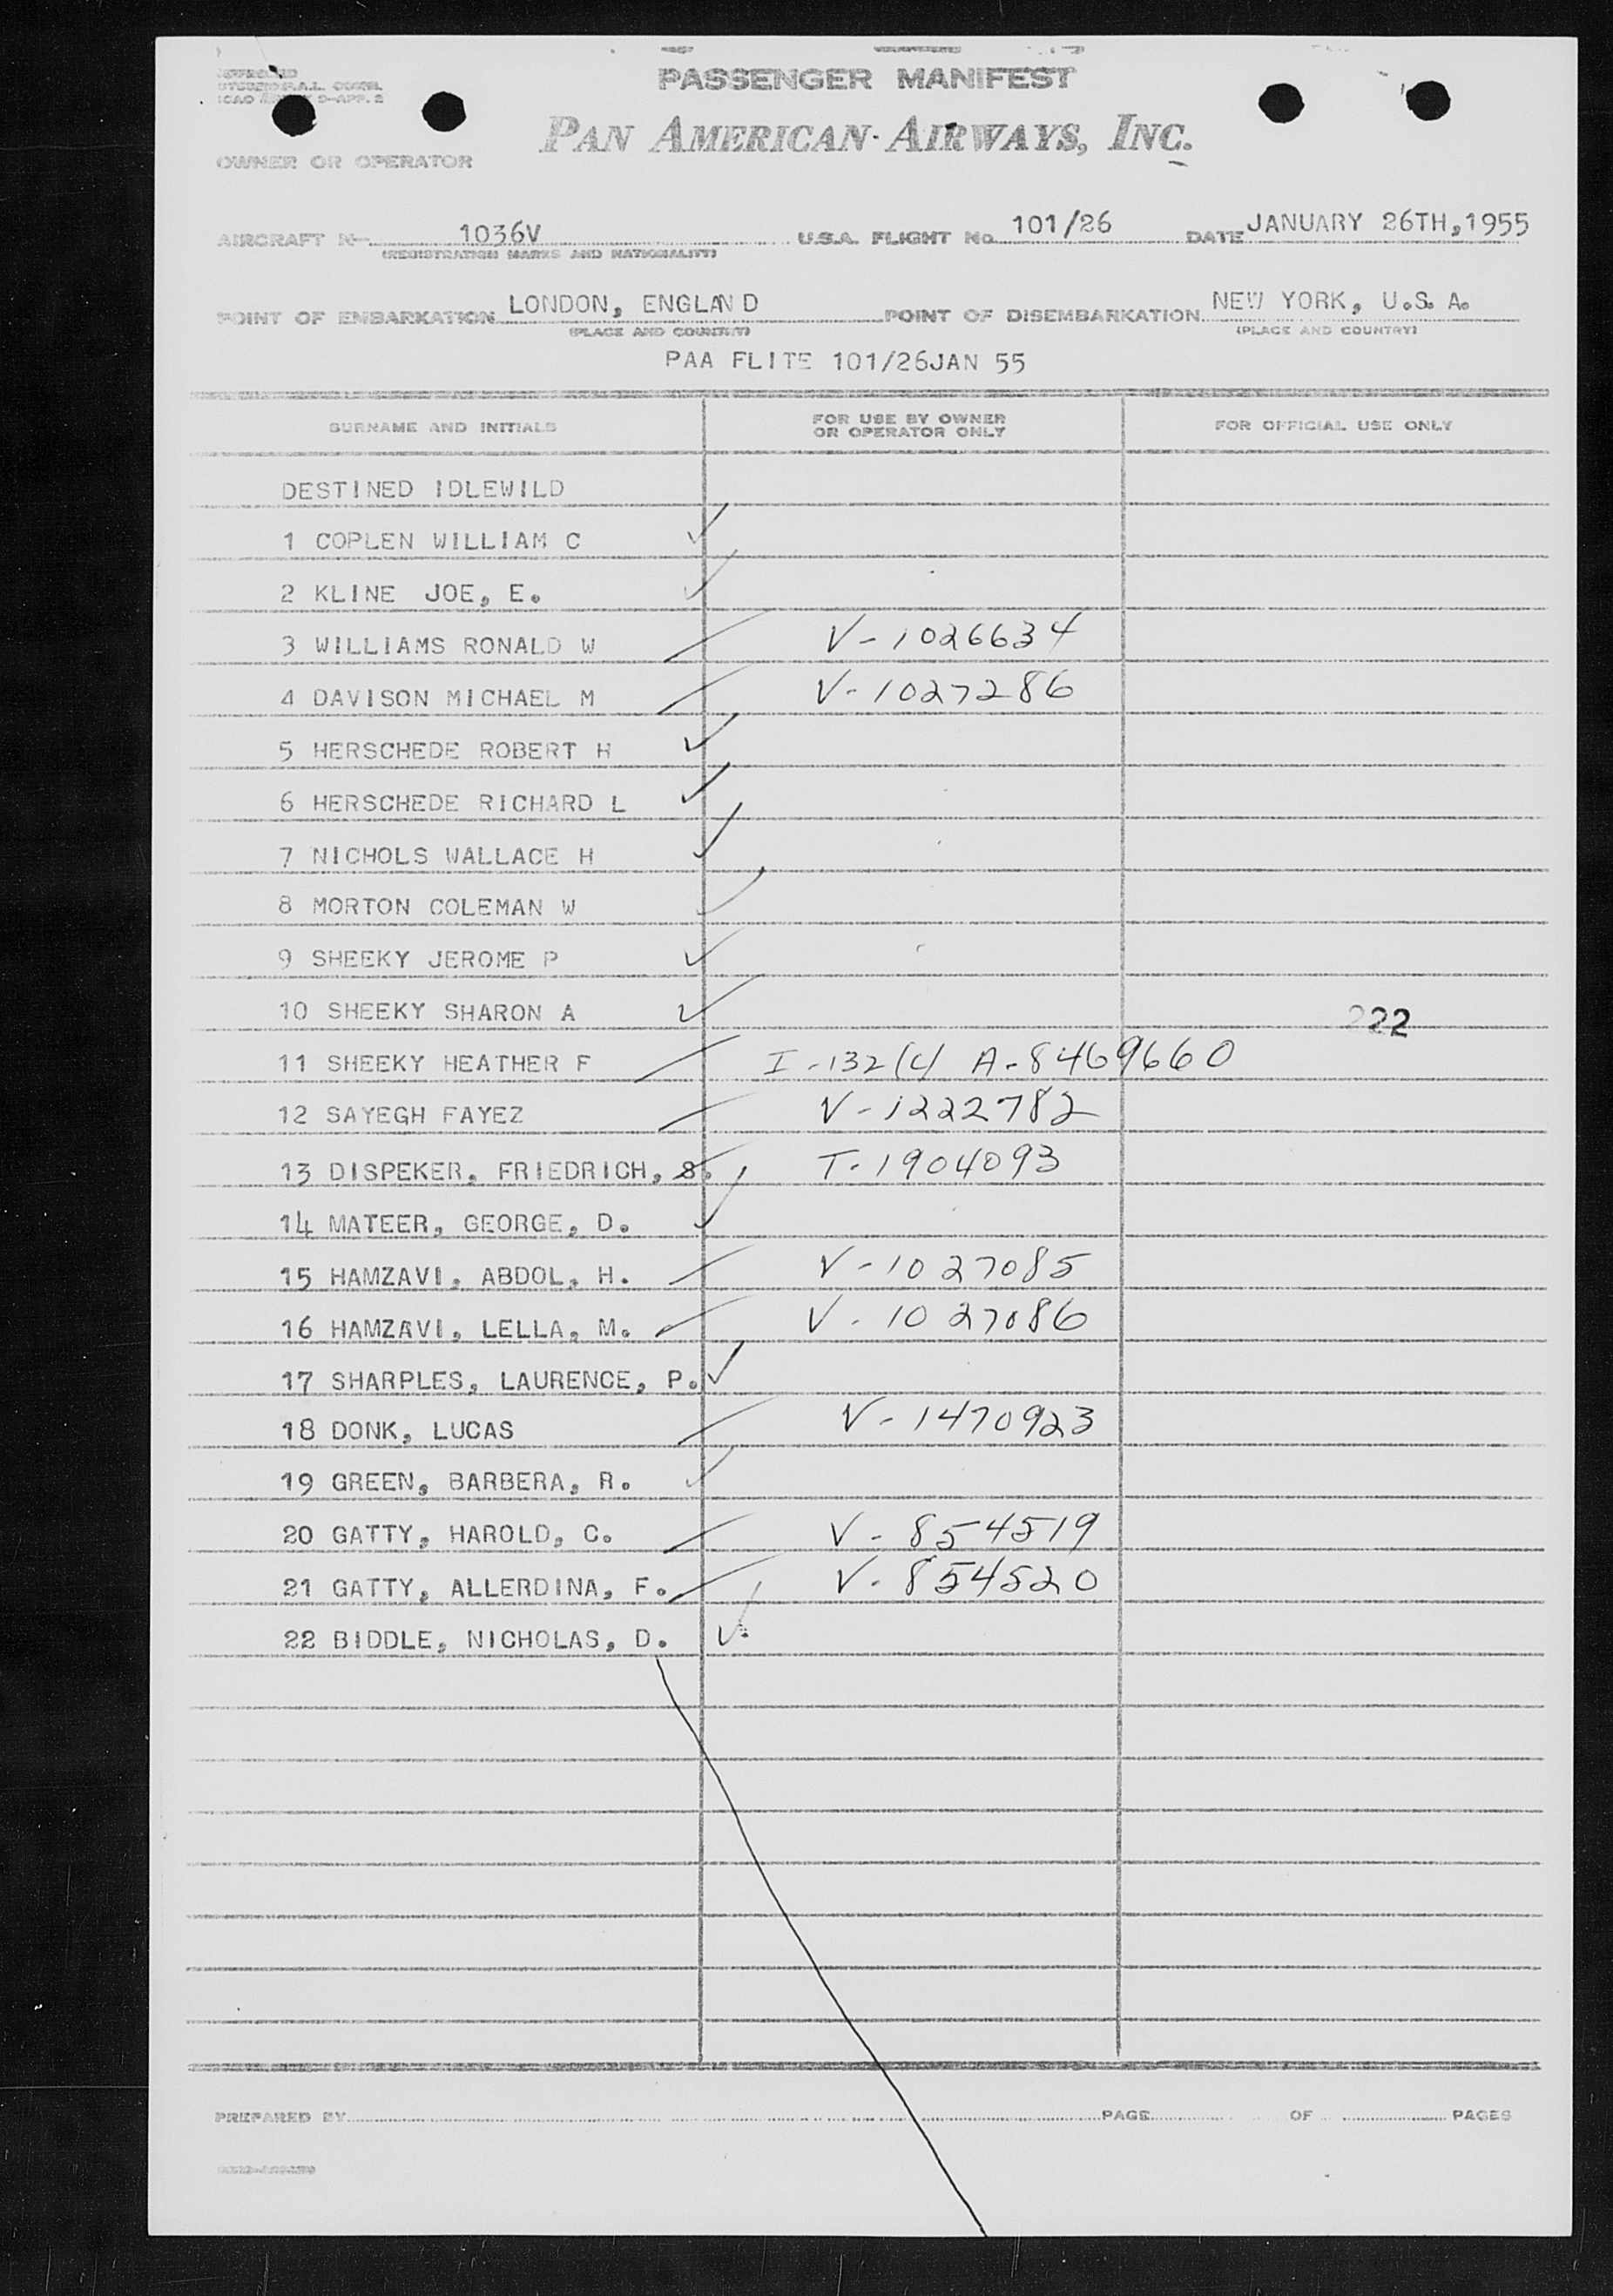 PASSENGER MANIFEST
PAN AMERICAN AIRWAYS, INC.
OWNER OR OPERATOR
AIRCRAFT N— 1036V U.S.A. FLIGHT No 101/26 DATE JANUARY 26TH,1955
(REGISTRATION MARKS AND NATIONALITY)
POINT OF EMBARKATION LONDON, ENGLAN D POINT OF DISEMBARKATION NEW YORK, U.S. A.
(PLACE AND COUNTRY) (PLACE AND COUNTRY)
PAA FLITE 101/26JAN 55
SURNAME AND INITIALS FOR USE BY OWNER OR OPERATOR ONLY FOR OFFICIAL USE ONLY
DESTINED IDLEWILD
1 COPLEN WILLIAM C
2 KLINE JOE, E.
3 WILLIAMS RONALD W V-1026634
4 DAVISON MICHAEL M V-1027286
5 HERSCHEDE ROBERT H
6 HERSCHEDE RICHARD L
7 NICHOLS WALLACE H
8 MORTON COLEMAN W
9 SHEEKY JEROME P
10 SHEEKY SHARON A
222
11 SHEEKY HEATHER F I-132(c) A-8469660
12 SAYEGH FAYEZ V-1222782
13 DISPEKER, FRIEDRICH, S. T-1904093
14 MATEER, GEORGE, D.
15 HAMZAVI, ABDOL, H. V-1027085
16 HAMZAVI, LELLA, M. V-1027086
17 SHARPLES, LAURENCE, P.
18 DONK, LUCAS V-1470923
19 GREEN, BARBERA, R.
20 GATTY, HAROLD, C. V-854519
21 GATTY, ALLERDINA, F. V-854520
22 BIDDLE, NICHOLAS, D.
PREPARED BY PAGE OF PAGES